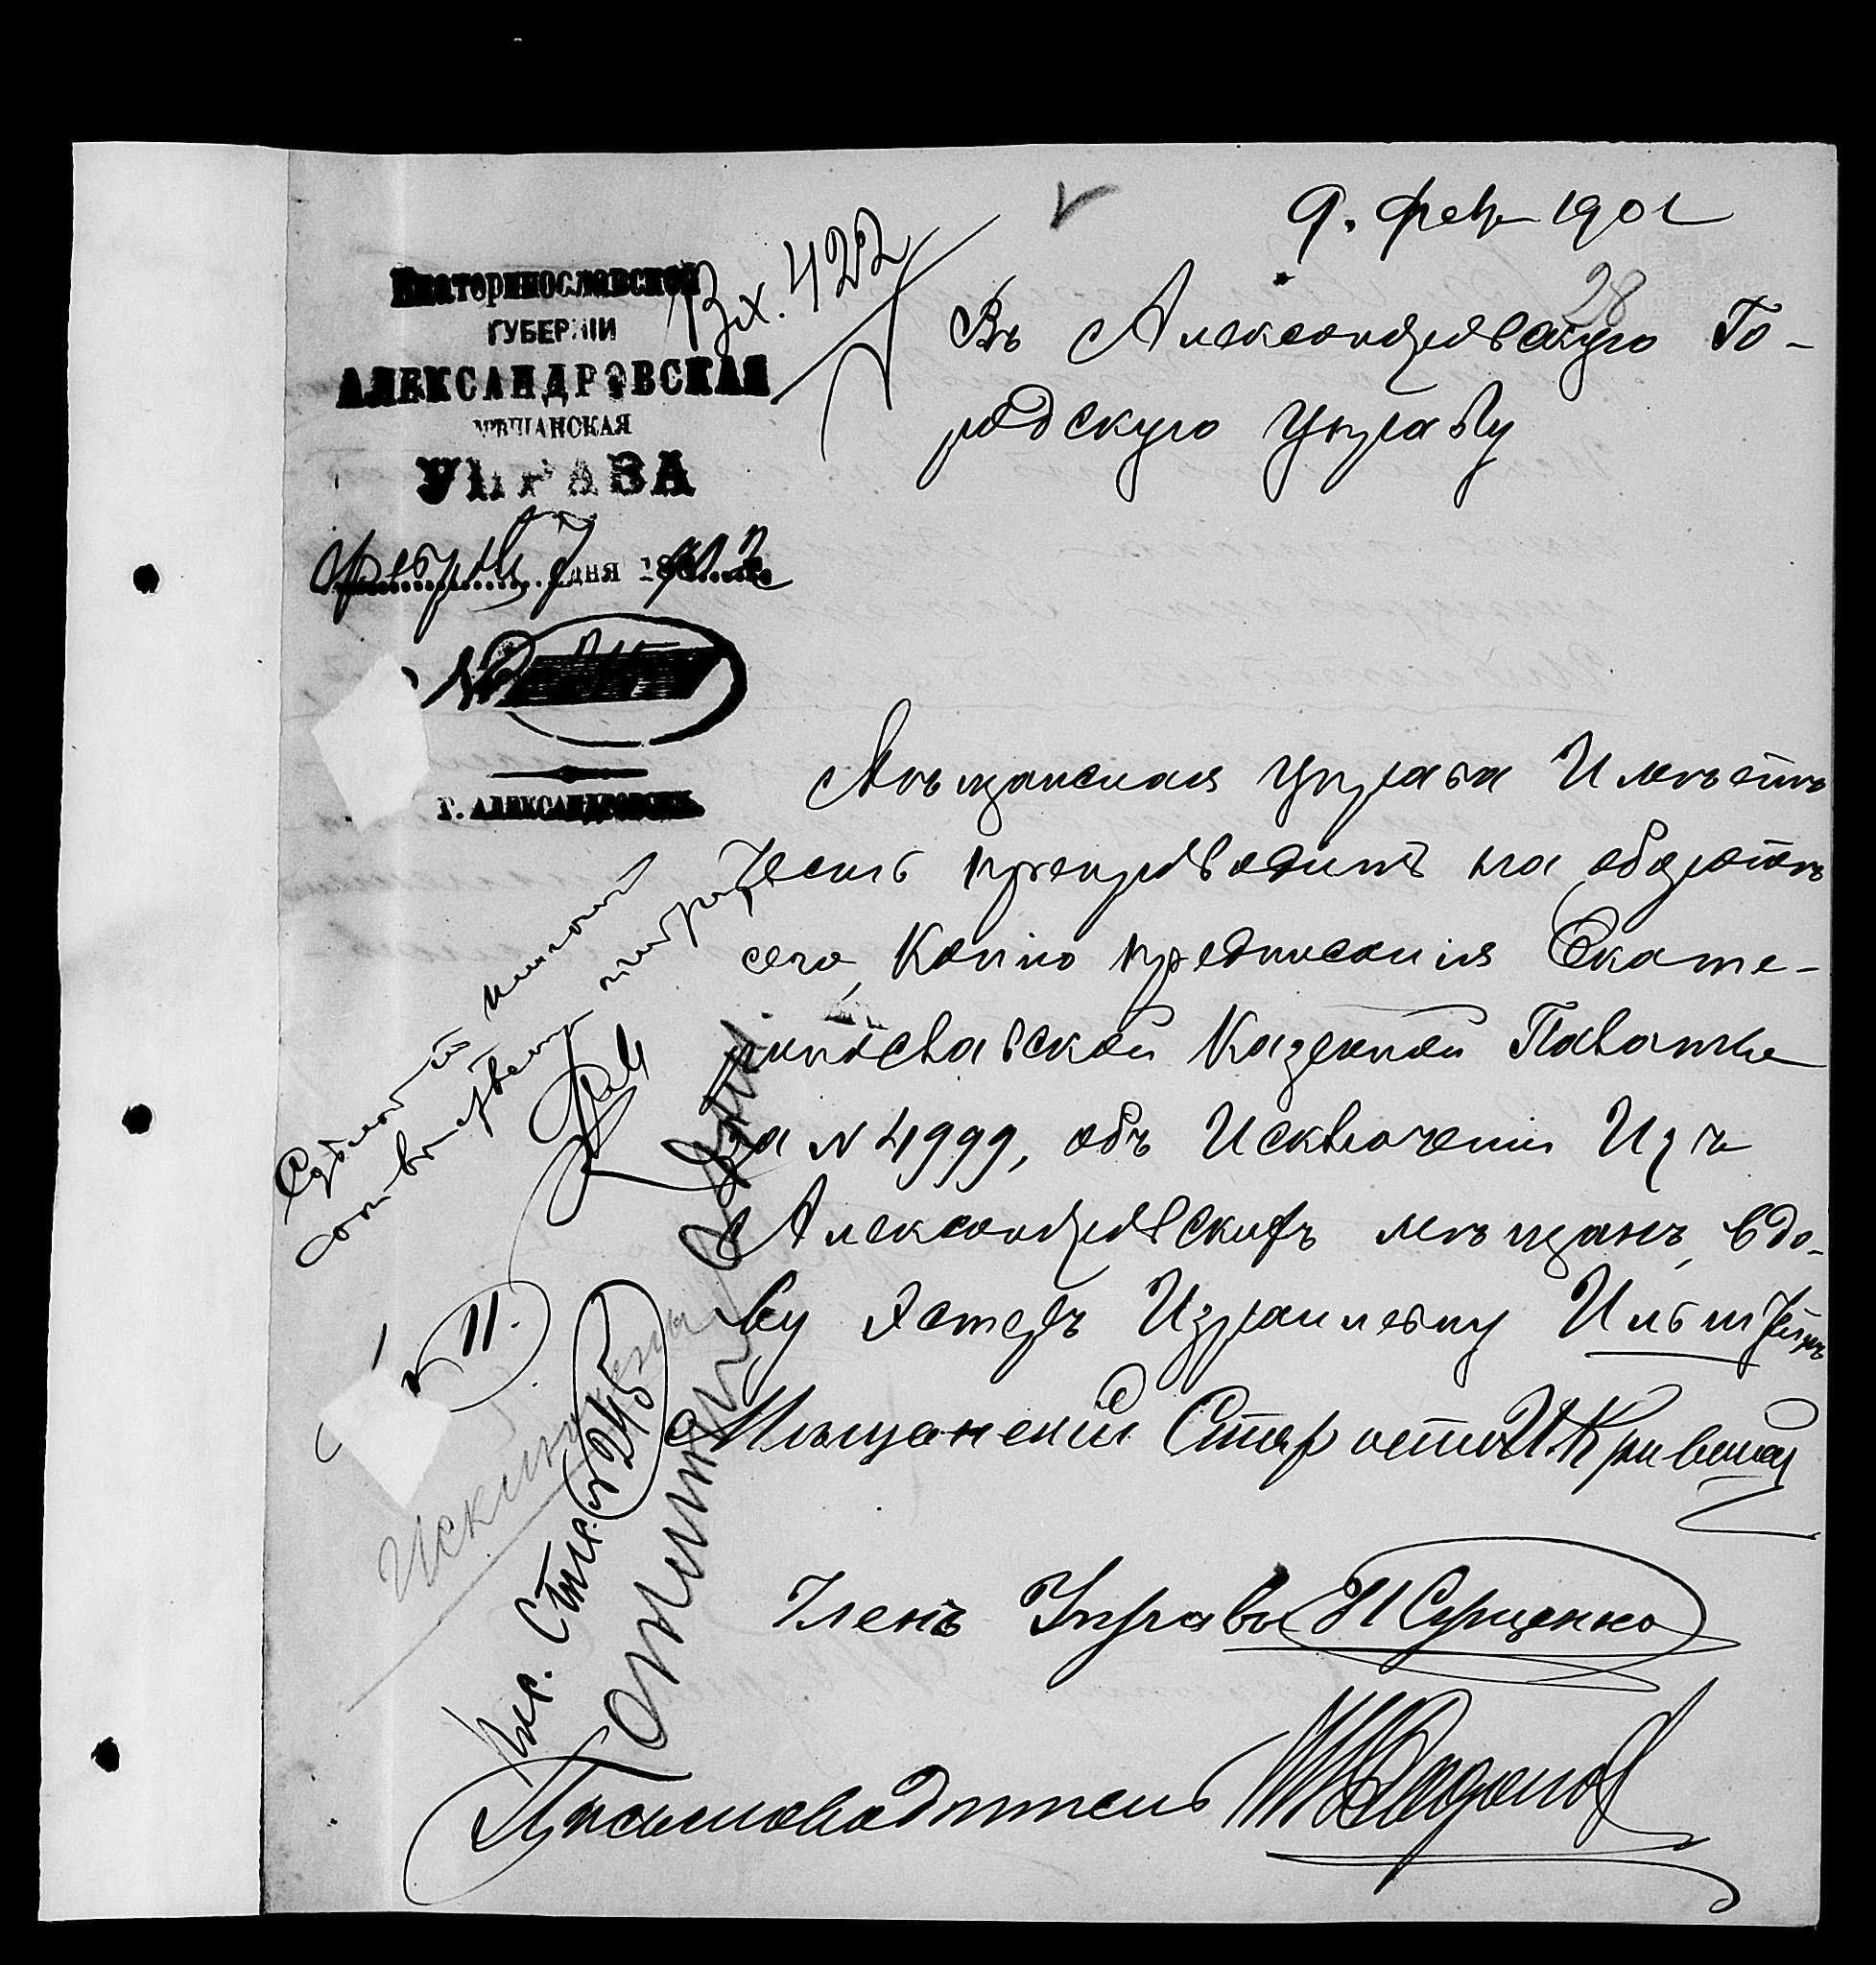 9. фев 1902
28
Вх. 422
Екатеринославской
ГУБЕРНІИ
АЛЕКСАНДРОВСКАЯ
МѢЩАНСКАЯ
УПРАВА
Февраля 7 дня 1902
№
Г. АЛЕКСАНДРОВСКЪ
Въ Александровскую Го-
родскую Управу
Мѣщанская Управа Имѣетъ
Честь препроводить на оборотѣ
сего, Копію предписанія Екате-
ринославской Казенной Палаты
за № 4999, объ Исключеніи Изъ
Александровскихъ мѣщанъ, вдо-
ву Эстеръ Израилевну
Мѣщанскій Староста
Членъ Управы
Письмоводитель
11.
Исключена
№ 245